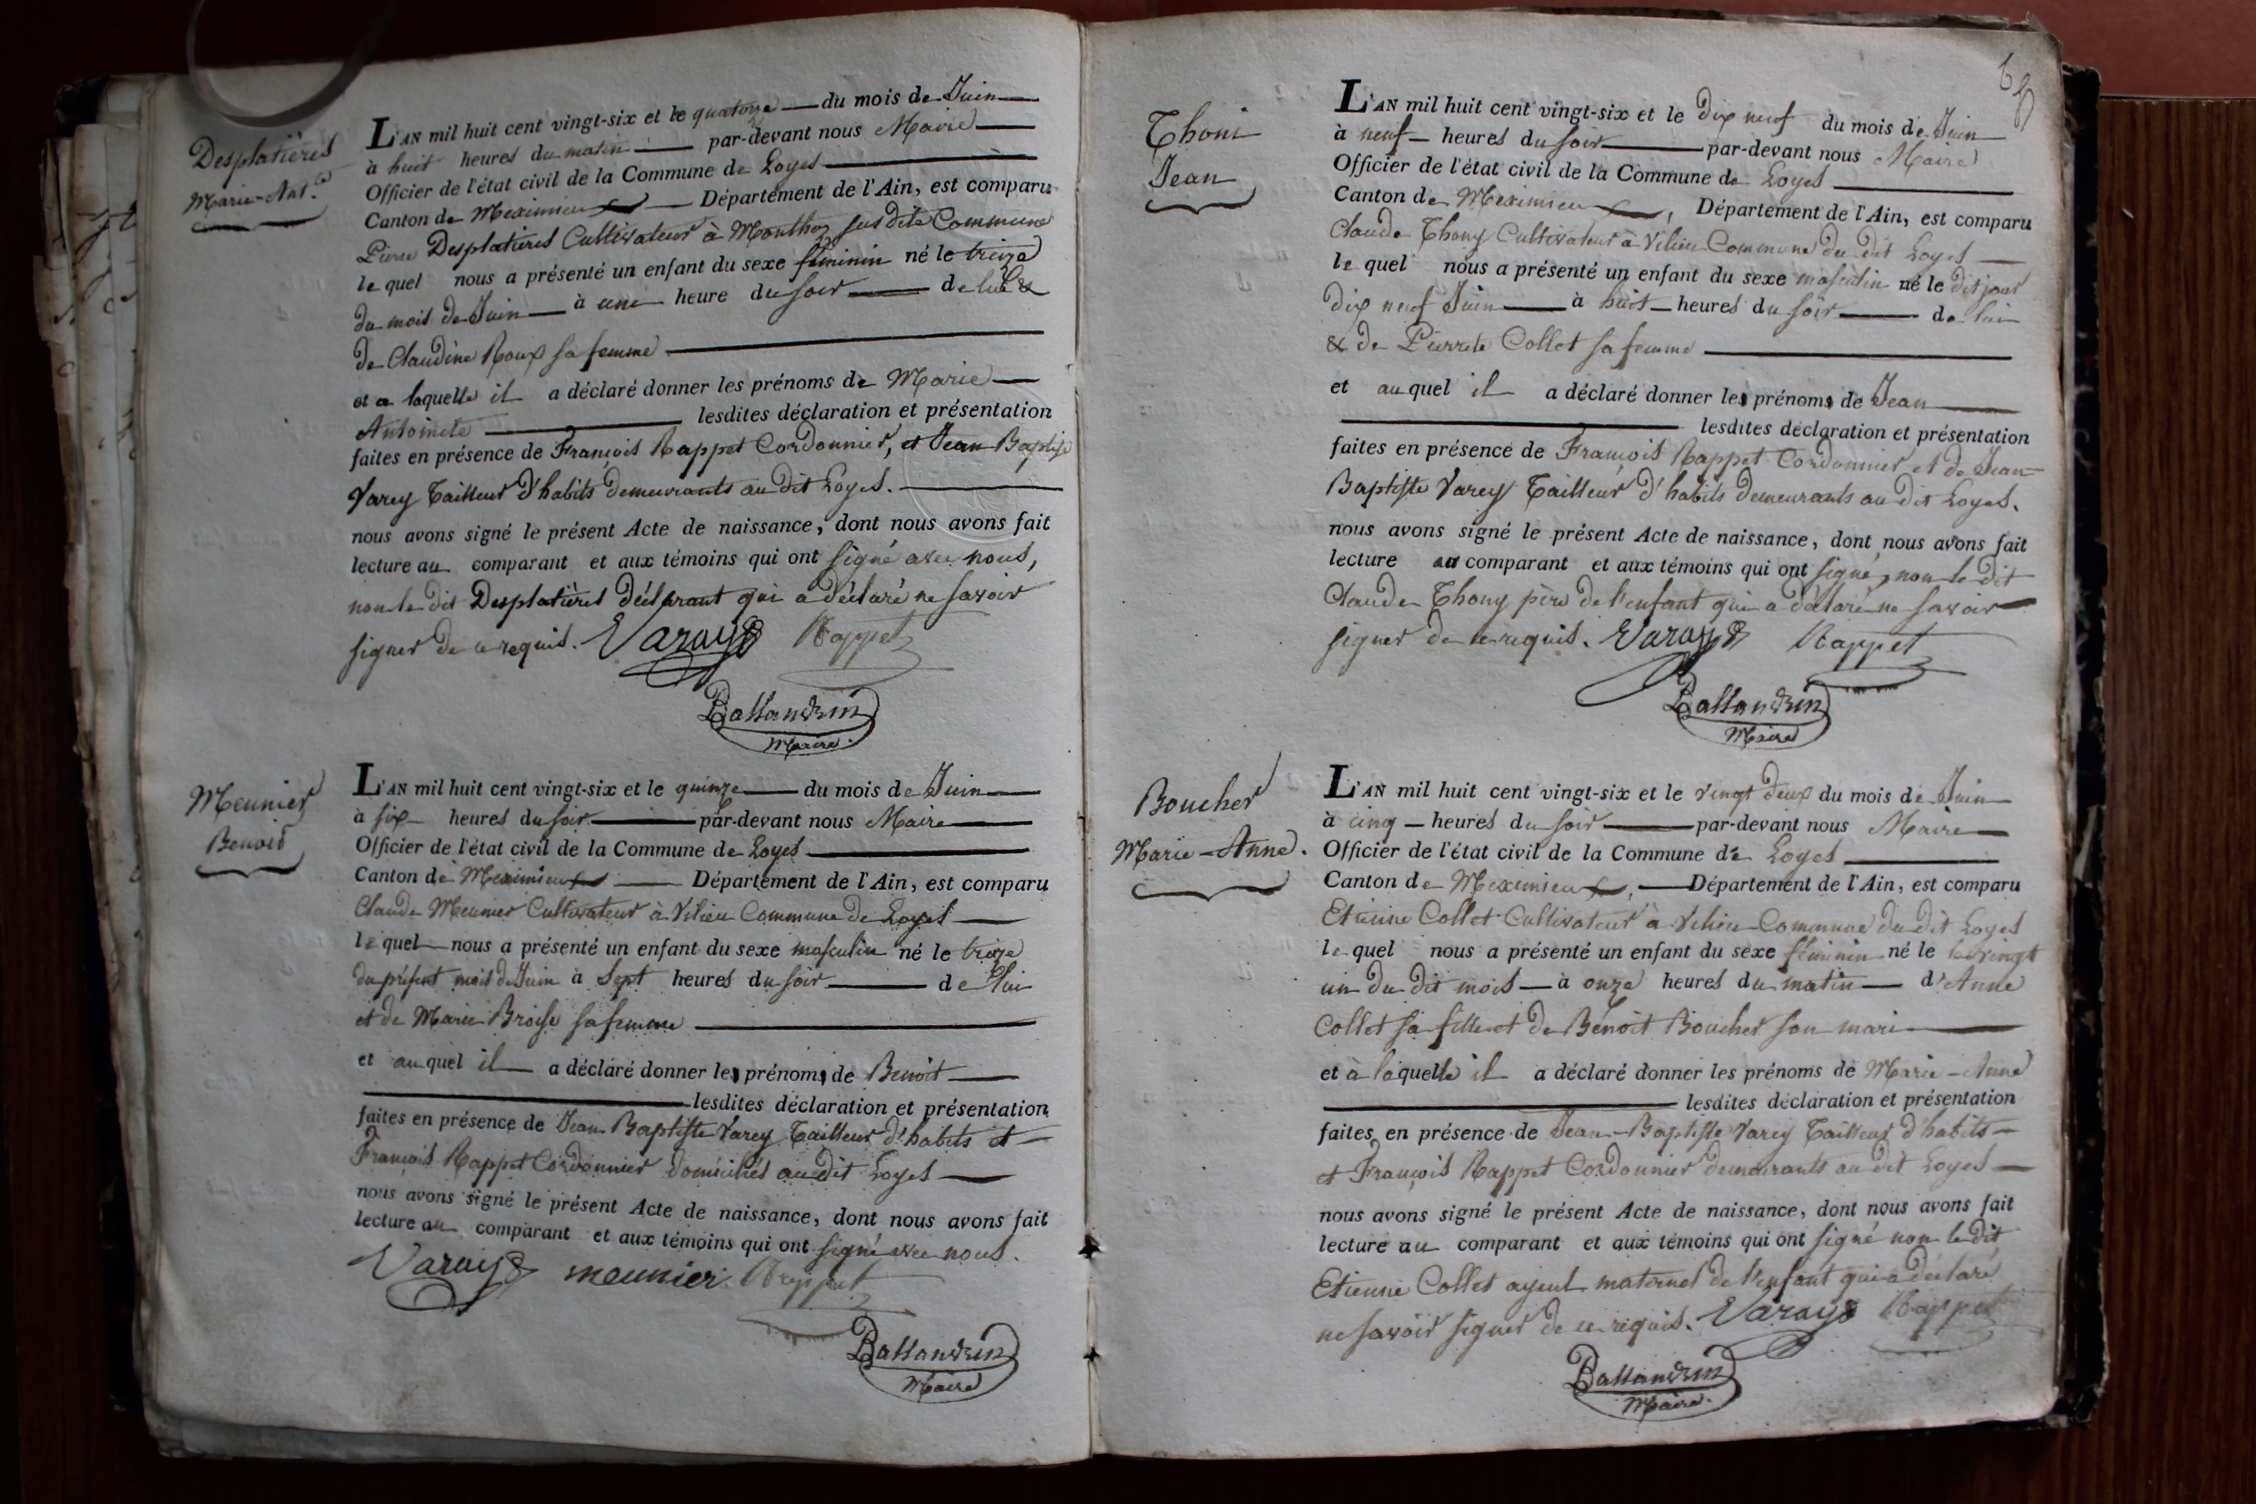 Desplatières
Marie-Ant.te
L'AN mil huit cent vingt-six et le quatorze du mois de Juin
à huit heures du matin par-devant nous Maire
Officier de l'état civil de la Commune de Loyes
Canton de Meximieux Département de l'Ain, est comparu
Pierre Desplatières Cultivateur à Monthoz susdite Commune
le quel nous a présenté un enfant du sexe féminin né le treize
du mois de Juin à une heure du soir de lui &
de Claudine Roux sa femme
et a laquelle il a déclaré donner les prénoms de Marie
Antoinete lesdites déclaration et présentation
faites en présence de François Rappet Cordonnier, et Jean Baptiste
Varey Tailleur d'habits demeurants au dit Loyes.
nous avons signé le présent Acte de naissance, dont nous avons fait
lecture au comparant et aux témoins qui ont signé avec nous,
non le dit Desplatières déclarant qui a déclaré ne savoir
signer de ce requis. Varay Rappet
Ballandrin
Maire.
Meunier
Benoit
L'AN mil huit cent vingt-six et le quinze du mois de Juin
à six heures du soir par-devant nous Maire
Officier de l'état civil de la Commune de Loyes
Canton de Meximieux Département de l'Ain, est comparu
Claude Meunier Cultivateur à Vilieu Commune de Loyes
le quel nous a présenté un enfant du sexe masculin né le treize
du présent mois de Juin à Sept heures du soir de lui
et de Marie Broise sa femme
et au quel il a déclaré donner les prénoms de Benoit
lesdites déclaration et présentation
faites en présence de Jean Baptiste Varey Tailleur d'habits et
François Rappet Cordonnier domiciliés au dit Loyes
nous avons signé le présent Acte de naissance, dont nous avons fait
lecture au comparant et aux témoins qui ont signé avec nous.
Varay meunier Rappet
Ballandrin
Maire
62
Thoni
Jean
L'AN mil huit cent vingt-six et le dix neuf du mois de Juin
à neuf heures du soir par-devant nous Maire
Officier de l'état civil de la Commune de Loyes
Canton de Meximieux, Département de l'Ain, est comparu
Claude Thony Cultivateur à Vilieu Commune du dit Loyes
le quel nous a présenté un enfant du sexe masculin né le dit jour
dix neuf Juin à huit heures du soir de lui
& de Pierrete Collet sa femme
et au quel il a déclaré donner les prénoms de Jean
lesdites déclaration et présentation
faites en présence de François Rappet Cordonnier et de Jean
Baptiste Varey Tailleur d'habits demeurants au dit Loyes.
nous avons signé le présent Acte de naissance, dont nous avons fait
lecture au comparant et aux témoins qui ont signé, non le dit
Claude Thony père de l'enfant qui a déclaré ne savoir
signer de ce requis. Varay Rappet
Ballandrin
Maire
Boucher
Marie-Anne.
L'AN mil huit cent vingt-six et le vingt deux du mois de Juin
à cinq heures du soir par-devant nous Maire
Officier de l'état civil de la Commune de Loyes
Canton de Meximieux, Département de l'Ain, est comparu
Etienne Collet Cultivateur à Vilieu Commune du dit Loyes
le quel nous a présenté un enfant du sexe féminin né le le vingt
un du dit mois à onze heures du matin d'Anne
Collet sa fille et de Benoit Boucher son mari
et à laquelle il a déclaré donner les prénoms de Marie-Anne
lesdites déclaration et présentation
faites en présence de Jean-Baptiste Varey Tailleur d'habits
et François Rappet Cordonnier demeurants au dit Loyes
nous avons signé le présent Acte de naissance, dont nous avons fait
lecture au comparant et aux témoins qui ont signé non le dit
Etienne Collet ayeul maternel de l'enfant qui a déclaré
ne savoir signer de ce requis. Varay Rappet
Ballandrin
Maire.